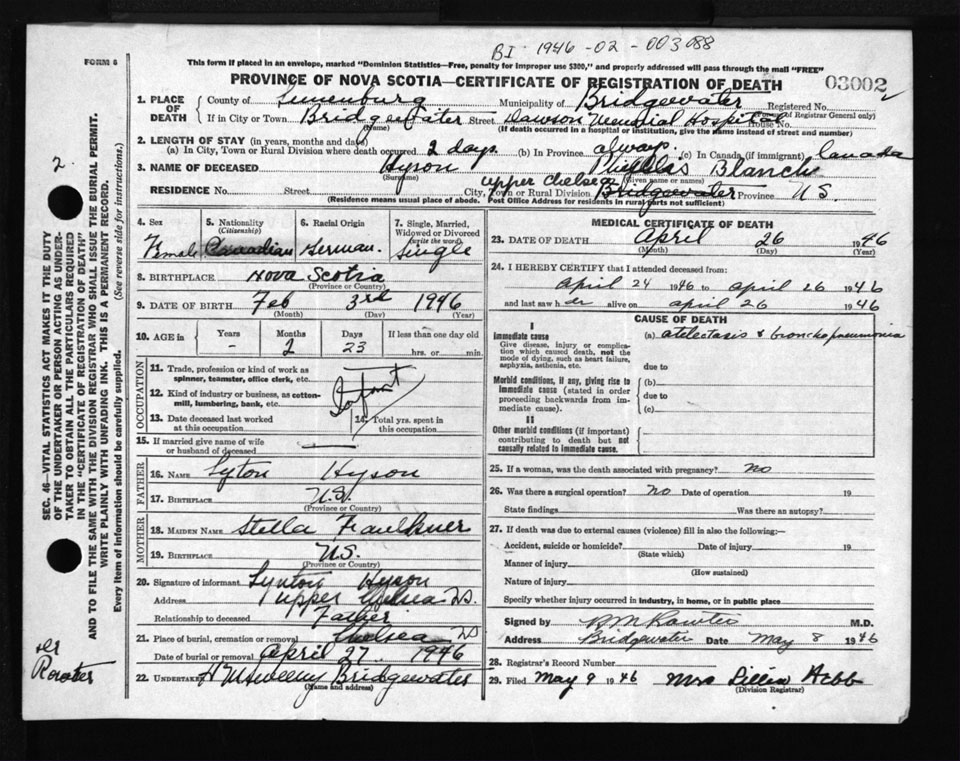 BI 1946-02-003088
FORM 6
This form if placed in an envelope, marked "Dominion Statistics—Free, penalty for improper use $300," and properly addressed will pass through the mail "FREE"
PROVINCE OF NOVA SCOTIA—CERTIFICATE OF REGISTRATION OF DEATH 03002
1. PLACE OF DEATH County of Lunenburg Municipality of Bridgewater Registered No.
(For use of Registrar General only)
If in City or Town Bridgewater Street Dawson Memorial Hospital House No.
(Name) (If death occurred in a hospital or institution, give the name instead of street and number)
2. LENGTH OF STAY (in years, months and days)
(a) In City, Town or Rural Division where death occurred 2 days (b) In Province always. (c) In Canada (if immigrant) Canada
3. NAME OF DECEASED Hyson Phyllis Blanche
(Surname) (Given name or names)
RESIDENCE No. Street City, Town or Rural Division upper chelsea Bridgewater Province N.S.
(Residence means usual place of abode. Post Office Address for residents in rural parts not sufficient)
4. Sex 5. Nationality (Citizenship) 6. Racial Origin 7. Single, Married, Widowed or Divorced (write the word)
Female Canadian German. Single
8. BIRTHPLACE Nova Scotia
(Province or Country)
9. DATE OF BIRTH Feb 3rd 1946
(Month) (Day) (Year)
10. AGE in Years Months Days If less than one day old
- 2 23 hrs. or min.
OCCUPATION
11. Trade, profession or kind of work as spinner, teamster, office clerk, etc.
12. Kind of industry or business, as cotton-mill, lumbering, bank, etc.
Infant
13. Date deceased last worked at this occupation 14. Total yrs. spent in this occupation
15. If married give name of wife or husband of deceased
FATHER
16. NAME Lyton Hyson
17. BIRTHPLACE N.S.
(Province or Country)
MOTHER
18. MAIDEN NAME Stella Faulkner
19. BIRTHPLACE N.S.
(Province or Country)
20. Signature of informant Lynton Hyson
Address upper Chelsea N.S.
Relationship to deceased Father
21. Place of burial, cremation or removal Chelsea N.S.
Date of burial or removal April 27 1946
22. UNDERTAKER H McSweeny Bridgewater
(Name and address)
MEDICAL CERTIFICATE OF DEATH
23. DATE OF DEATH April 26 1946
(Month) (Day) (Year)
24. I HEREBY CERTIFY that I attended deceased from:
april 24 1946 to april 26 1946
and last saw h er alive on april 26 1946
CAUSE OF DEATH
I
Immediate cause (a) atelectasis & bronchopneumonia
Give disease, injury or complication which caused death, not the mode of dying, such as heart failure, asphyxia, asthenia, etc.
due to
Morbid conditions, if any, giving rise to immediate cause (stated in order proceeding backwards from immediate cause).
(b)
due to
(c)
II
Other morbid conditions (if important) contributing to death but not causally related to immediate cause.
25. If a woman, was the death associated with pregnancy? no
26. Was there a surgical operation? no Date of operation 19
State findings Was there an autopsy?
27. If death was due to external causes (violence) fill in also the following:—
Accident, suicide or homicide? Date of injury 19
(State which)
Manner of injury
(How sustained)
Nature of injury
Specify whether injury occurred in industry, in home, or in public place
Signed by M.D.
Address Bridgewater Date May 8 1946
28. Registrar's Record Number
29. Filed May 9 1946 Mrs Lillian Hebb
(Division Registrar)
2.
SEC. 46—VITAL STATISTICS ACT MAKES IT THE DUTY
OF THE UNDERTAKER OR PERSON ACTING AS UNDER-
TAKER TO OBTAIN ALL THE PARTICULARS REQUIRED
IN THE "CERTIFICATE OF REGISTRATION OF DEATH"
AND TO FILE THE SAME WITH THE DIVISION REGISTRAR WHO SHALL ISSUE THE BURIAL PERMIT.
WRITE PLAINLY WITH UNFADING INK. THIS IS A PERMANENT RECORD.
Every item of information should be carefully supplied. (See reverse side for instructions.)